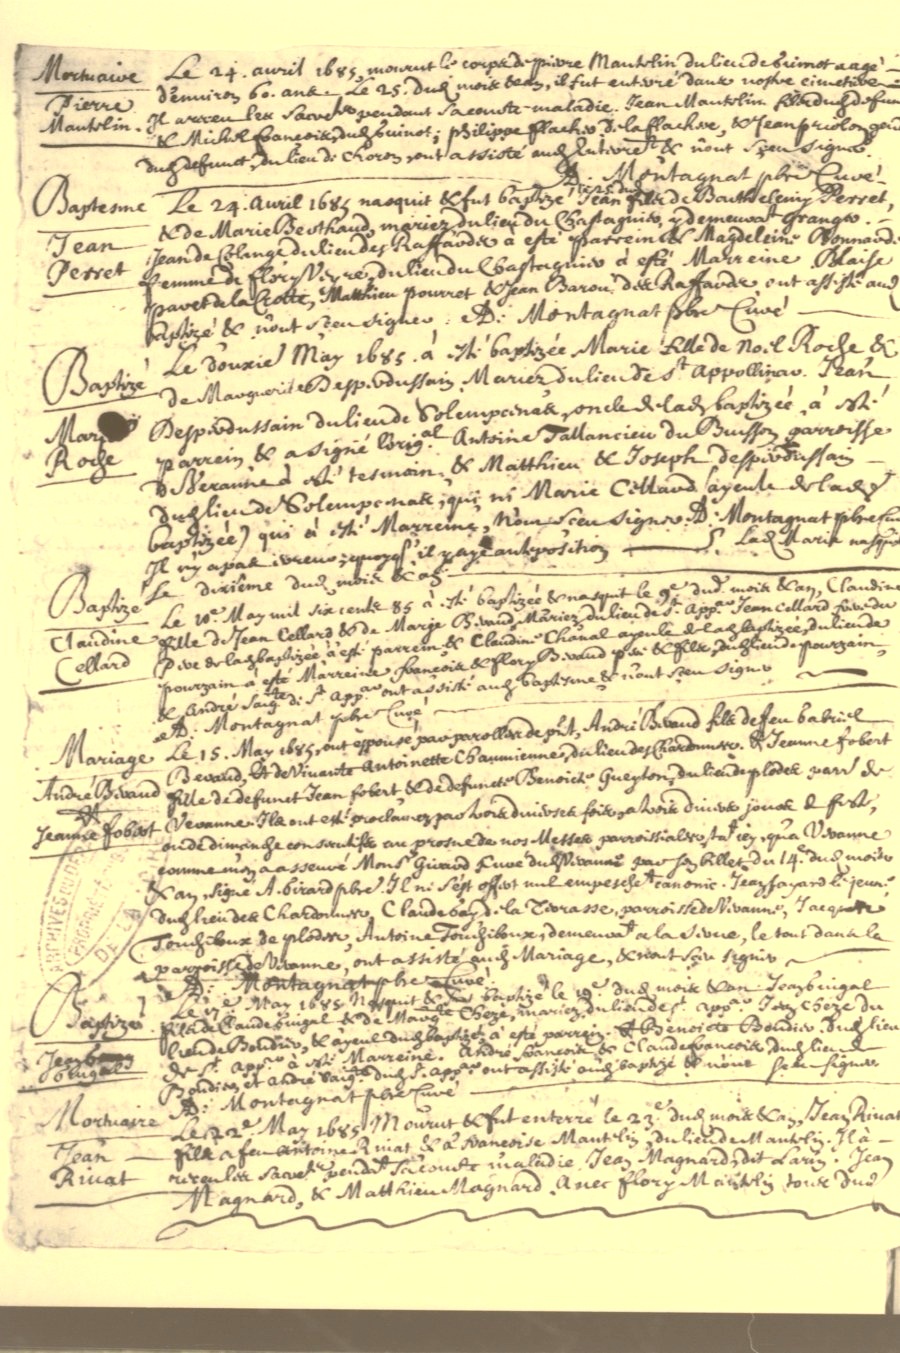 Mortuaire Le 24. avril 1685 mourut le corps de pierre Mantelin du lieu de Guinot aagé
Pierre d'environ 60. ans. Le 25. dud mois & an, il fut enterré dans nostre cimetiere
Mantelin. Il a receu les sacrets pendant sa courte maladie. Jean Mantelin fils dud defunt
& Michel françois dud Guinot; philippe flachier de la flachere, & Jean priolon
dud defunt, du lieu de Choron, ont assisté aud Enterret & n'ont sceu signer.
A. D: Montagnat pbre Curé
Baptesme Le 24. Avril 1685 nasquit & fut baptizé le 25 dud Jean fils de Barthelemy Perret,
Jean & de Marie Berthaud, mariez du lieu du Chastagnier, y demeurat Granger.
Perret Jean de Colange du lieu des Raffardes a esté parrein & Magdeleine Bonnarde
femme de flory Veyre, du lieu du Chastagnier a esté Marreine. Blaise
pavet de la Crotte, Matthieu pourret & Jean Barou des Raffardes ont assisté aud
baptizé & n'ont sceu signer. D: Montagnat pbre Curé
Baptizé Le douzie May 1685. à esté baptizée Marie fille de Noël Roche &
Marie de Marguerite Despeydussain Mariez du lieu de St Appollinar. Jean
Roche Despeydussain du lieu de Solempcenas, oncle de lad baptizée, à esté
parrein & a signé l'origal Antoine Tallancieu du Buisson parroisse
de Veranne à esté tesmoin & Matthieu & Joseph despeydussain
dud lieu de Solempcenas, qui ni Marie Cellard (ayeule de lad
baptizée) qui à esté Marreine, n'ont sceu signer. D: Montagnat pbre Curé
Il n'y a pas erreur; quoyqu'il y aye anteposition Lad Marie nasquit
Le dixième dud mois & an
Baptizé Le 10e May mil six cents 85 à esté baptizée & nasquit le 9e dud mois & an, Claudine
Claudine fille de Jean Cellard & de Marie Béraud, Mariez, du lieu de St Appar. Jean Cellard frere du
Cellard Pere de lad baptizée à esté parrein & Claudine Chanal ayeule de lad baptizée, du lieu de
pourzain à esté Marreine. françois & flory Béraud pere & fils, dud lieu de pourzain
& André de St Appar ont assisté aud baptesme & n'ont sceu signer
D: Montagnat pbre Curé
Mariage Le 15. May 1685, ont espousé par parolles de pnt, André Béraud fils de feu Gabriel
André Béraud Béraud, & de vivante Antoinette Chaumienne, du lieu des Chardonnes. & Jeanne fobert
& fille de defunct Jean fobert, & de defuncte Benoicte Gueyton, du lieu de plodes parr de
Jeanne fobert Veranne. Ils ont esté proclamez par trois diverses fois, a trois divers jours de feste,
ou de dimanche consecutifs au prosne de nos Messes parroissiales, tant icy, qu'a Veranne
comme m'en a asseuré Monsr Girard Curé dud Veranne par son billet du 14e dud mois
& an, signé A. Girard pbre. Il ne s'est offert nul empeschet canonic. Jean fayard le jeune
dud lieu des Chardonnes, Claude de la Terrasse, parroisse de Veranne, Jacques
Touzibour de plodes, Antoine Touzibour, demeurat a la Sieue, le tout dans la
parroisse de Veranne, ont assisté aud Mariage, & n'ont sceu signer
D: Montagnat pbre Curé
Baptizé Le 17e May 1685 Nasquit & fut baptizé le 19e dud mois & an Jean Gingal
Jean fils de Claude Gingal & de Margte Cheze, mariez, du lieu de St Appar Jean Cheze du
Gingal lieu de Bondier, & ayeul dud baptizé à esté parrein. & Benoicte Bondier dud lieu
de St Appar à esté Marreine. André françois & Claude françois, dud lieu de
Bondier, et André dud St Appar ont assisté aud baptizé & n'ont sceu signer
D: Montagnat pbre Curé
Mortuaire Le 22e May 1685 Mourut & fut enterré le 23e dud mois & an, Jean Rivat
Jean fils a feu Antoine Rivat & à françoise Mantelin, du lieu de Mantelin. Il à
Rivat receu les sacrets pendat sa courte maladie. Jean Magnard, dit Larin. Jean
Magnard, & Matthieu Magnard. Avec flory Mantelin tous dud
ARCHIVES
DE LA